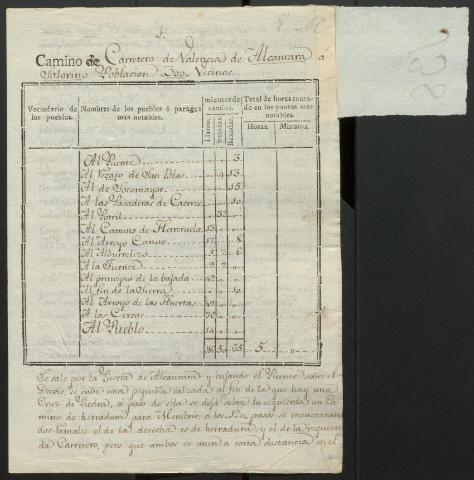 1.
Camino de Carretero de Valencia de Alcantara a
Salorino Poblacion 300 Vecinos.
Vecindario de los pueblos.
Nombres de los pueblos ó parages mas notables.
minutos de camino.
Llanos. Subidas. Bajadas.
Total de horas contado en los puntos mas notables.
Horas. Minutos.
Al Puente 3.
Al Regato de San Blas 4 13
Al de Sotomayor 15
A las Pasaderas de Caceres 10
Al Potril
Al Camino de Herreruela 13
Al Arroyo Canito 17 8
Al Alburrelizo 5 7 6
A la Fuente 9 7
Al principio de la bajada 42
Al fin de la Sierra 10
Al Arroyo de las Huertas 49
A las Cercas 36
Al Pueblo 14
65 5
Se sale por la Puerta de Alcantara y bajando el Puente sobre
sube una pequeña calzada al fin de la que hay una
Cruz de Piedra, a poco de esta se deja sobre la izquierda un Ca-
mino de herradura para Membrio, a los 500 pasos se encuentran
dos Ramales el de la derecha es de herradura, y el de la izquier-
da Carretero, pero que ambos se unen a corta distancia en el